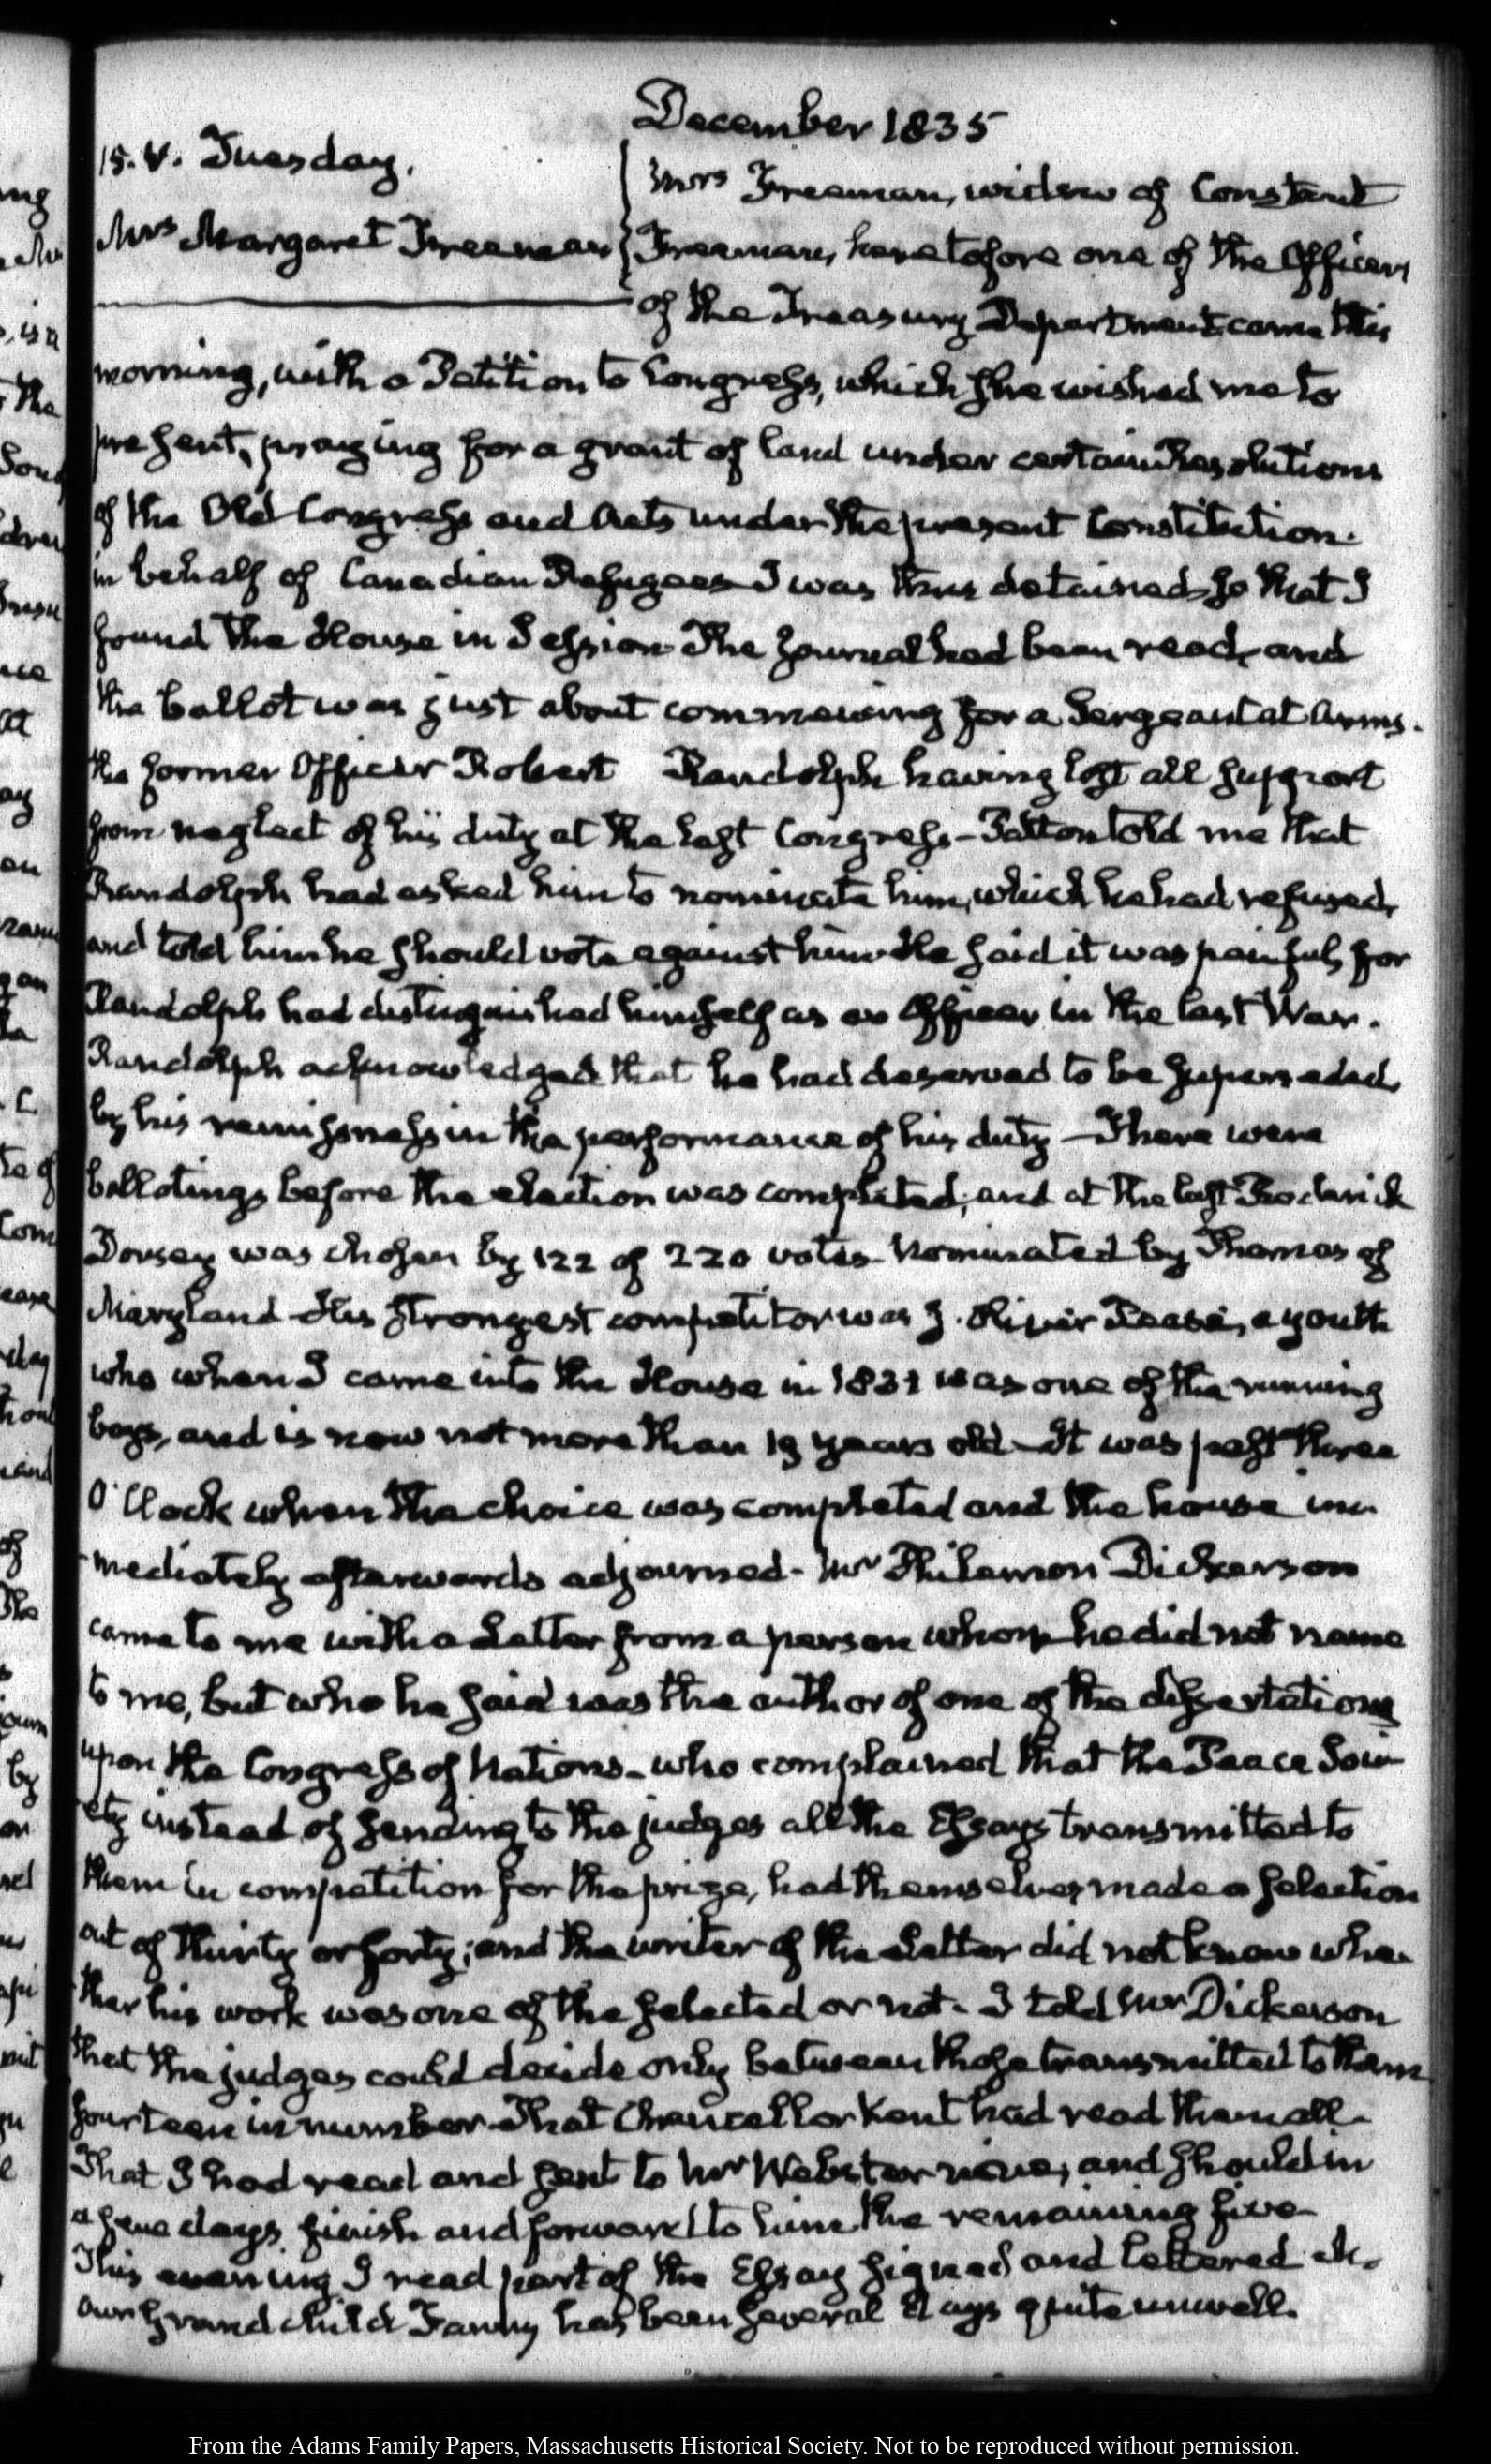 December 1835
15. V. Tuesday.
Mrs Margaret Freeman
Mrs Freeman, widow of Constant
Freeman, heretofore one of the Officers
of the Treasury Department came this
morning, with a Petition to Congress, which she wished me to
present, praying for a grant of land under certain Resolutions
of the Old Congress and Acts under the present Constitution.
in behalf of Canadian Refugees I was thus detained so that I
found the House in Session The Journal had been read, and
the ballot was just about commencing for a Sergeant at Arms.
the former Officer Robert Randolph having lost all support
from neglect of his duty at the last Congress - Patton told me that
Randolph had asked him to nominate him, which he had refused,
and told him he should vote against him He said it was painful, for
Randolph had distinguished himself as an Officer in the last War.
Randolph acknowledged that he had deserved to be superseded,
by his remissness in the performance of his duty - There were
ballotings before the election was completed; and at the last Roderick
Dorsey was chosen by 122 of 220 votes. Nominated by Thomas of
Maryland His strongest competitor was J. Oliver Pease, a youth
who when I came into the House in 1831 was one of the running
boys, and is now not more than 19 years old - It was past three
O'Clock when the choice was completed and the house im-
mediately afterwards adjourned - Mr Philemon Dickerson
came to me with a Letter from a person whom he did not name
to me, but who he said was the author of one of the dissertations
upon the Congress of Nations - who complained that the Peace Soci-
ety instead of sending to the judges all the Essays transmitted to
them in competition for the prize, had themselves made a selection
out of thirty or forty; and the writer of the Letter did not know whe-
ther his work was one of the selected or not. I told Mr Dickerson
that the judges could decide only between those transmitted to them
fourteen in number - That Chancellor Kent had read them all.
That I had read and sent to Mr Webster nine, and should in
a few days finish and forward to him the remaining five.
This evening I read part of the Essay signed and lettered
our Grandchild Fanny has been several days quite unwell.
From the Adams Family Papers, Massachusetts Historical Society. Not to be reproduced without permission.